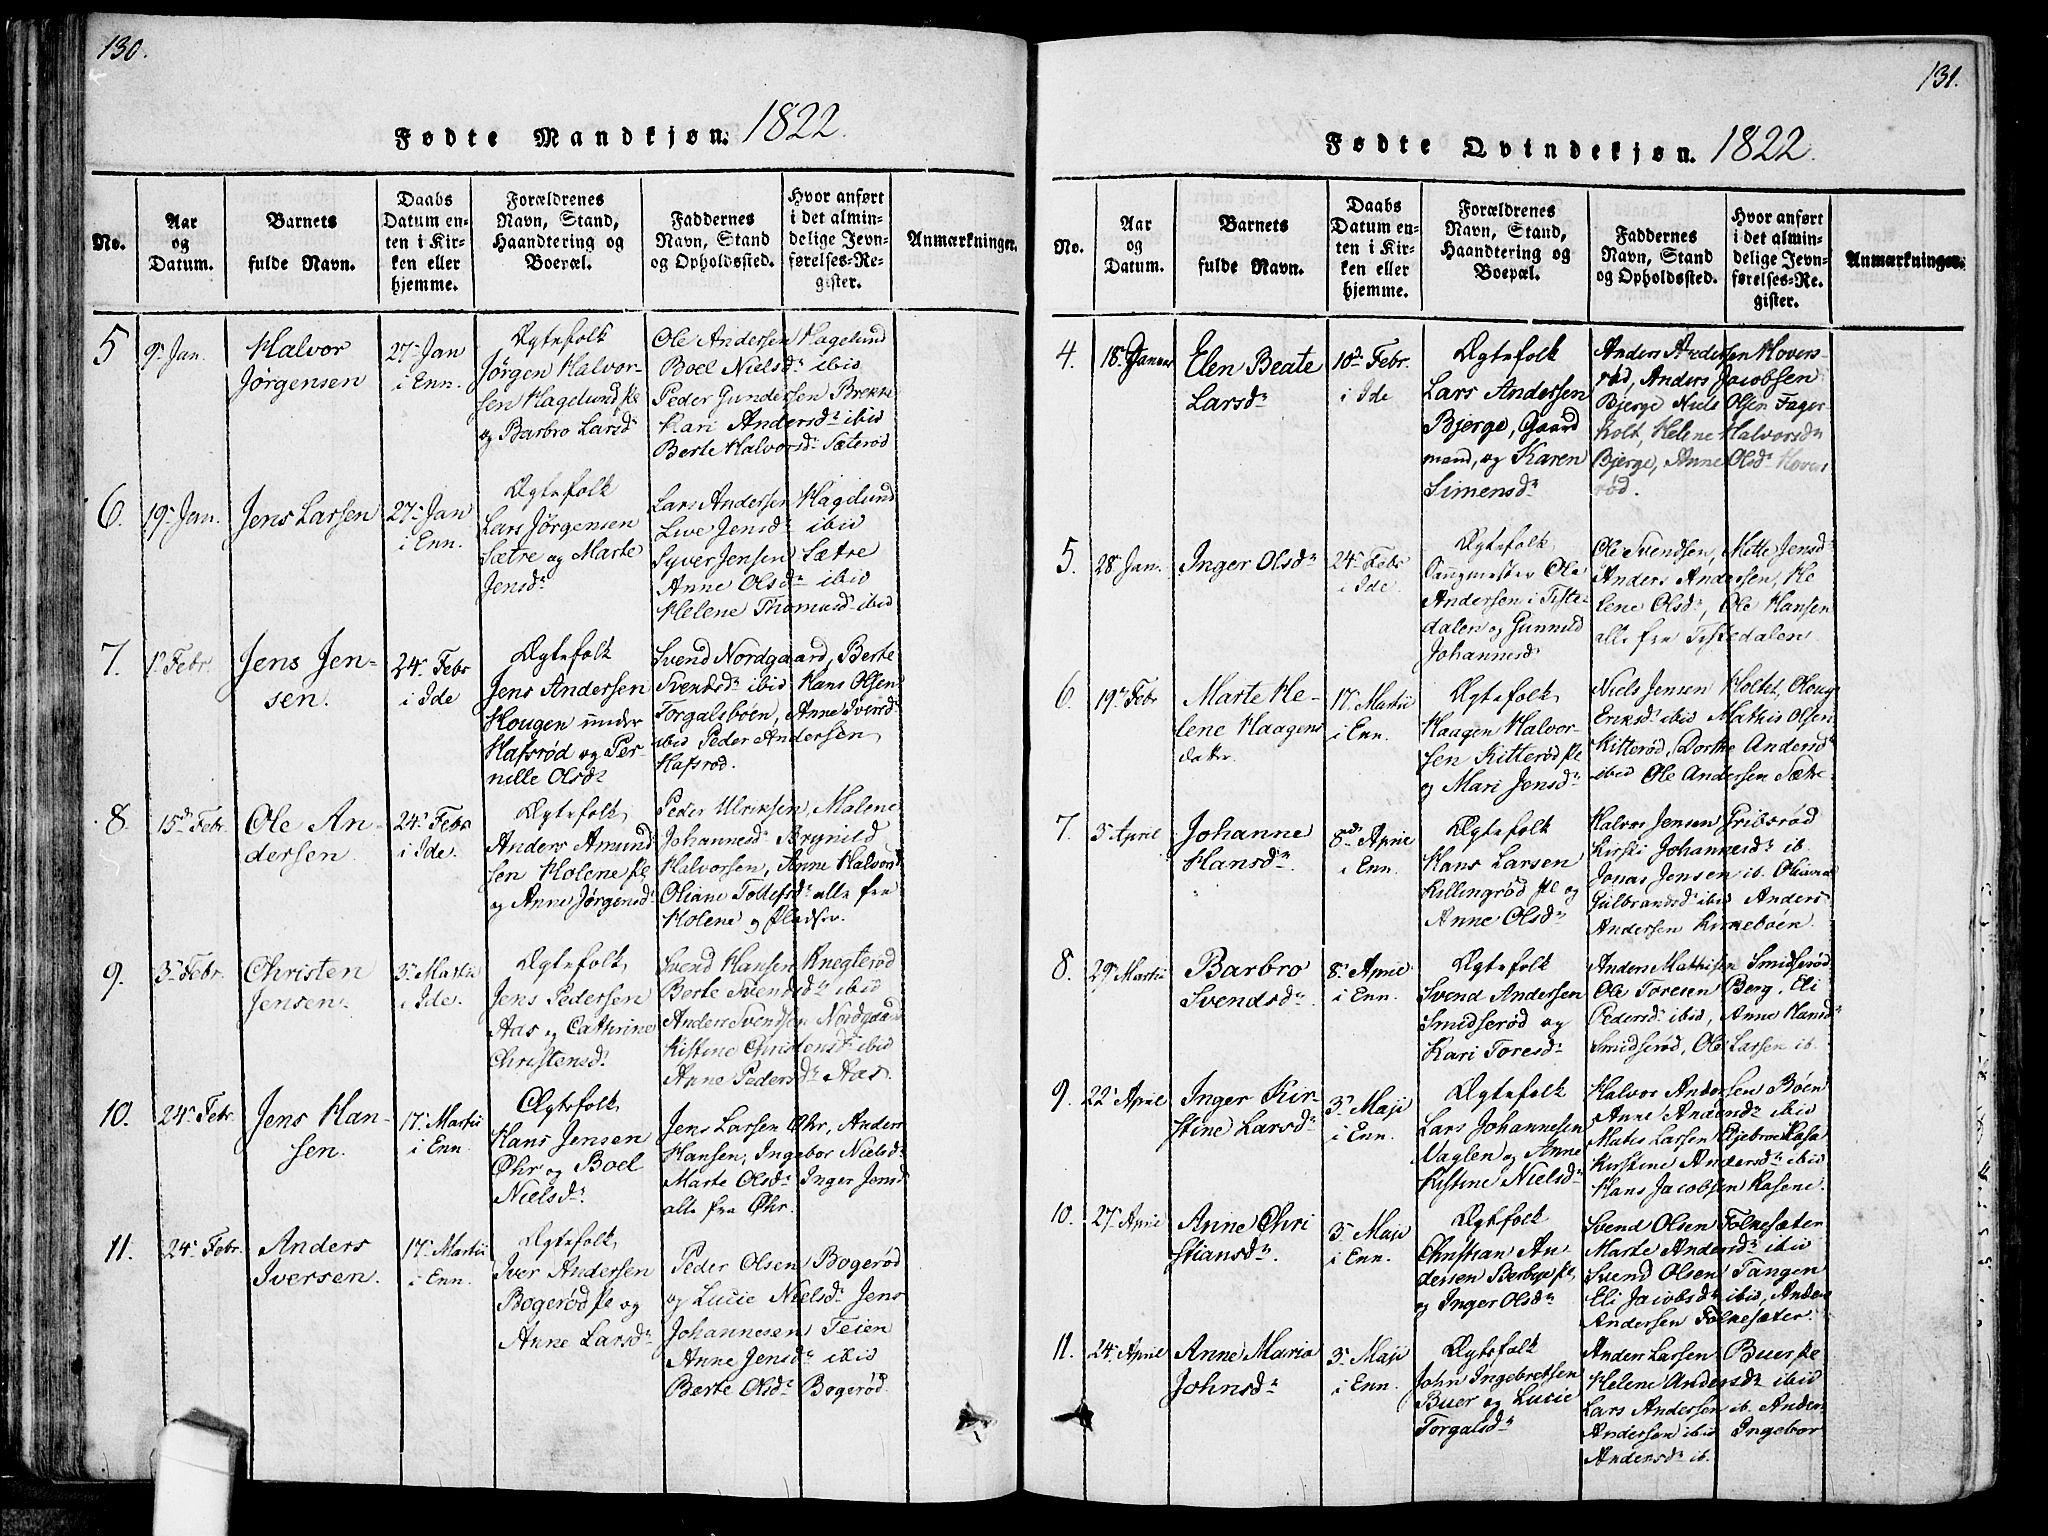 130.
Fødte Mandkjøn. 1822.
No.
Aar
og
Datum.
Barnets
fulde Navn.
Daabs
Datum en-
ten i Kir-
ken eller
hjemme.
Forældrenes
Navn, Stand,
Haandtering og
Boepæl.
Faddernes
Navn, Stand
og Opholdssted.
Hvor anført
i det almin-
delige Jevn-
førelses-Re-
gister.
Anmærkninger.
5
9de Jan.
Halvor
Jørgensen
27de Jan
i Enn.
Ægtefolk
Jørgen Halvor-
sen Hagelund
og Barbro Larsdr
Ole Andersen Hagelund
Boel Nielsdr ibid
Peder Gundersen Brekke
Kari Andersdr ibid
Berte Halvorsdr Sæterød
6.
19de Jan.
Jens Larsen
27de Jan
i Enn.
Ægtefolk
Lars Jørgensen
Sætre og Marte
Jensdr
Lars Andersen Hagelund
Live Jensdr ibid
Syver Jensen Sætre
Anne Olsdr ibid
Helene Thomasdr ibid
7.
1de Febr
Jens Jen-
sen.
24de Febr
i Ide
Ægtefolk
Jens Andersen
Hougen under
Hafsrød og Per
nille Olsdr
Svend Nordgaard, Berte
Svendsdr ibid Hans Olsen
Torgalsbøen, Anne Iversdr
ibid Peder Andersen
Hafsrød.
8.
15de Febr.
Ole An-
dersen
24de Febr
i Ide.
Ægtefolk
Anders Amund
sen Holene
og Anne Jørgensdr
Peder Ulriksen, Malene
Johannesdr Brynild
Halvorsen, Anne Halvorsdr
Oliane Tollefsdr alle fra
Holene og Pladser.
9.
3de Febr.
Christen
Jensen.
3de Martii
i Ide.
Ægtefolk
Jens Pedersen
Aas og Cathrine
Christensdr
Svend Hansen Knegterød
Berte Svendsdr ibid
Anders Svendsen Nordgaard
Kistine Christensdr ibid
Anne Pedersdr Aas.
10.
24de Febr.
Jens Han-
sen.
17de Martii
i Enn.
Ægtefolk
Hans Jensen
Øhr og Boel
Nielsdr
Jens Larsen Øhr, Anders
Hansen, Ingebor Nielsdr
Marte Olsdr Inger Jensdr
alle fra Øhr.
11.
24de Febr.
Anders
Iversen.
17de Martii
i Enn.
Ægtefolk
Iver Andersen
Bogerød og
Anne Larsdr
Peder Olsen Bogerød
og Lucie Nielsdr Jens
Johannesen Teien
Anne Jensdr ibid
Berte Olsdr Bogerød.
131.
Fødte Qvindekjøn. 1822.
No.
Aar
og
Datum.
Barnets
fulde Navn.
Daabs
Datum en-
ten i Kir-
ken eller
hjemme.
Forældrenes
Navn, Stand,
Haandtering og
Boepæl.
Faddernes
Navn, Stand
og Opholdssted.
Hvor anført
i det almin-
delige Jevn-
førelses-Re-
gister.
Anmærkninger.
4.
18de Januar
Elen Beate
Larsdr
10de Febr.
i Ide
Ægtefolk
Lars Andersen
Bjerge, Gaard
mand, og Karen
Simensdr
Anders Andersen Hovers-
rød, Anders Jacobsen
Bjerge Niels Olsen Fager
holt, Helene Halvorsdr
Bjerge, Anne Olsdr Hovers
rød.
5.
28 Jan.
Inger Olsdr
24de Febr
i Ide
Ægtefolk
Saugmester Ole
Andersen i Tiste
dalen og Gunnild
Johannesdr
Ole Svendsen, Mette Jensdr
Anders Andersen, He
lene Olsdr, Ole Hansen
alle fra Tistedalen
6
19de Febr
Marte He-
lene Haagens
datter.
17de Martii
i Enn.
Ægtefolk
Haagen Halvor-
sen Kitterød
og Mari Jensdr
Niels Jensen Holtet, Oloug
Eriksdr ibid Mathis Olsen
Kitterød, Dorthe Andersdr
ibid Ole Andersen Sætre
7.
3de April
Johanne
Hansdr
8de April
i Enn.
Ægtefolk
Hans Larsen
Killingrød og
Anne Olsdr
Halvor Jensen Gribsrød
Kirsti Johannesdr ib.
Jonas Jensen ib. Oliana
Gulbrandsdr ibid Anders
Andersen Kirkebøen.
8.
29de Martii
Barbro
Svendsdr
8de April
i Enn.
Ægtefolk
Svend Andersen
Smidserød og
Kari Toresdr
Anders Mathisen Smidserød
Ole Toresen Berg, Eli
Pedersdr ibid, Anne Hansdr
Smidserød, Ole Larsen ib.
9.
22de April
Inger Kir-
stine Larsdr
3de Maji
i Enn.
Ægtefolk
Lars Johannesen
Vaglen og Anne
Kistine Nielsdr
Halvor Andersen Bøen
Anne Andersdr ibid
Matis Larsen
Kirstine Andersdr ibid
Hans Jacobsen Kasene.
10.
27de April
Anne Chri
stiansdr
3de Maji
i Enn.
Ægtefolk
Christian An-
dersen Berbye
og Inger Olsdr
Svend Olsen Folkesæter
Marte Andersdr ibid
Svend Olsen Tangen
Eli Jacobsdr ibid, Anders
Andersen Folkesæter.
11.
24de April
Anne Maria
Johnsdr
3de Maji
i Enn.
Ægtefolk
John Ingebretsen
Buer og Lucie
Torgalsdr
Anders Larsen Buer
Helene Andersdr ibid
Lars Andersen ib. Anders
Andersen ibid Ingebor
Andersdr ib.